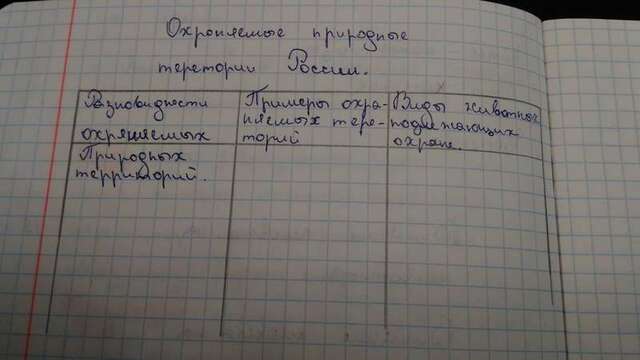 Охроняемые природные
теретории России.
Разновидности
охряняемых
Природных
территорий.
Примеры охра-
няемых тере-
торий
Виды животных
подлежающих
охране.